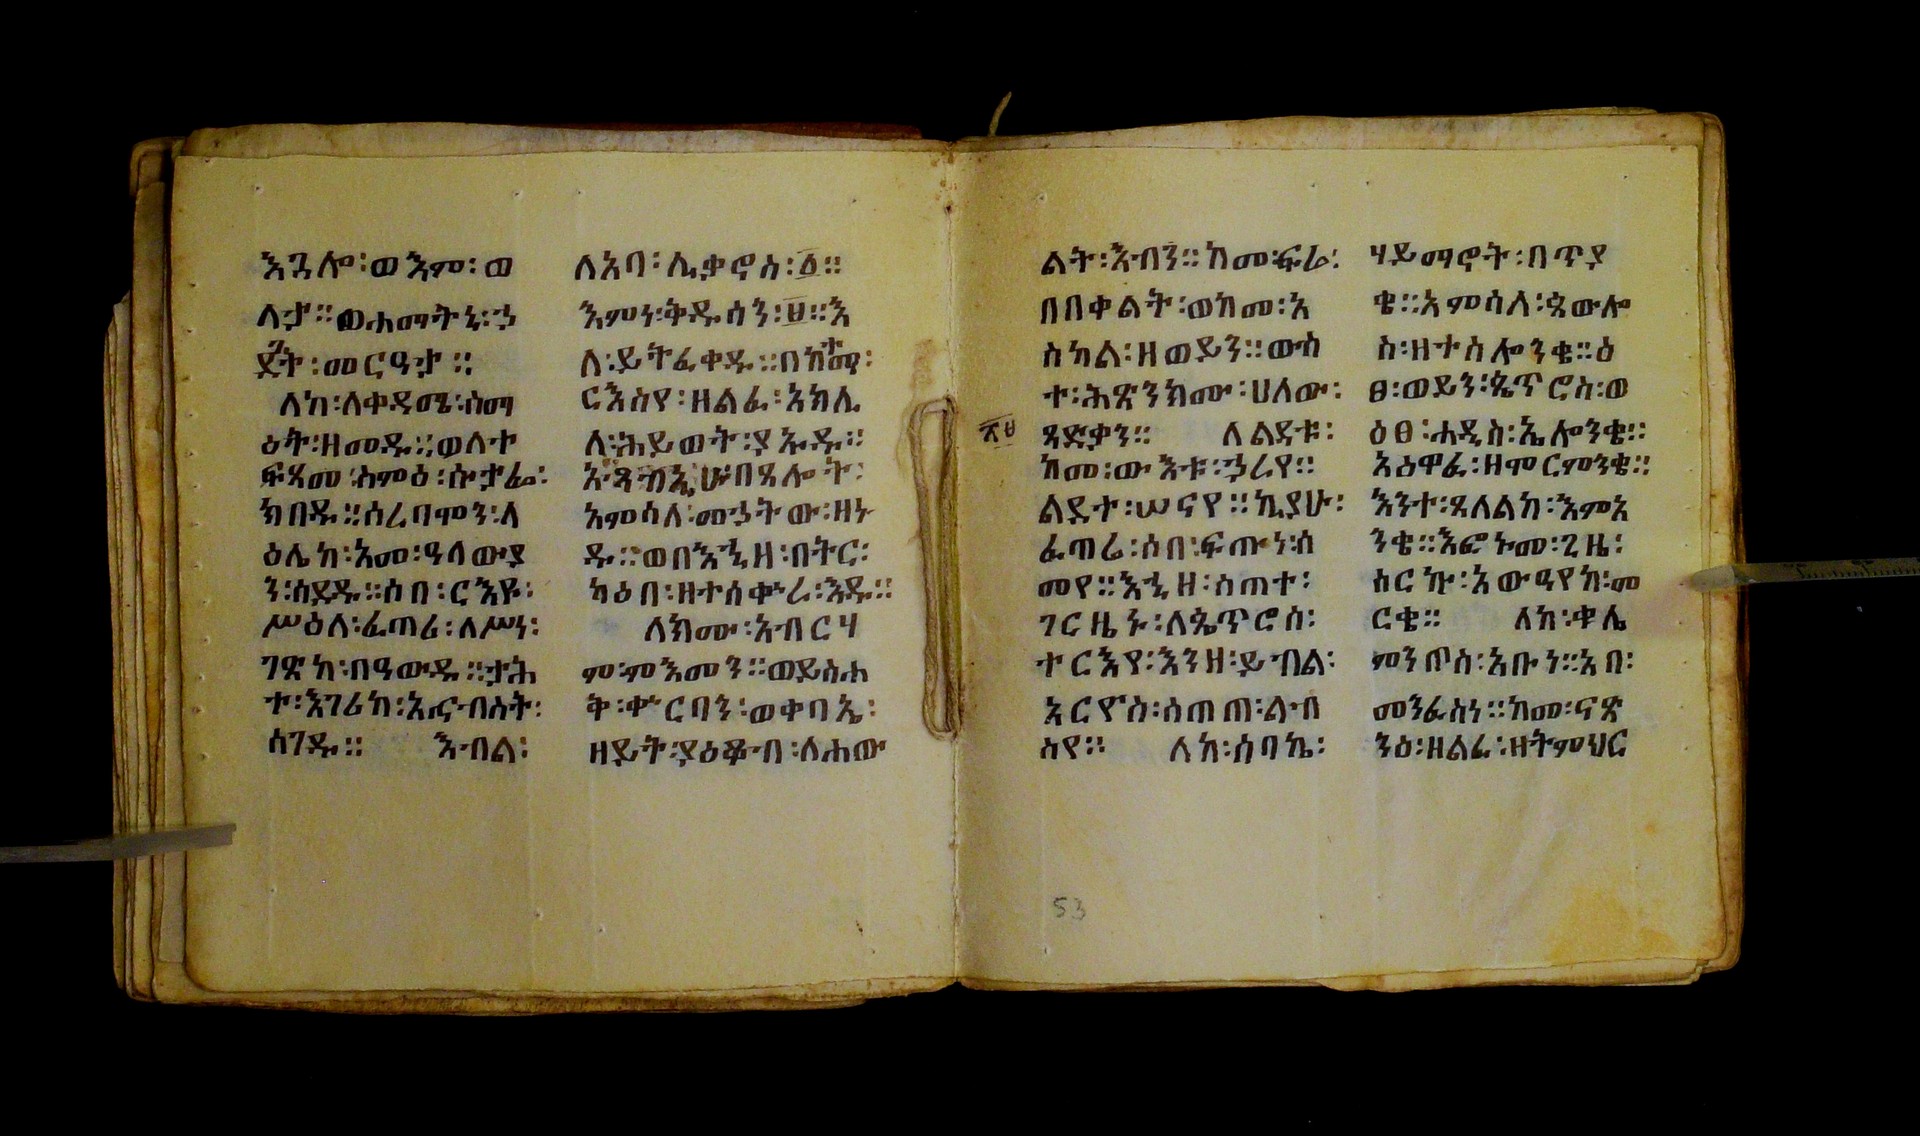 እጓሎ፡ወእም፡ወ
ላቷ።ወሐማትኒ፡ኃ
ደገት፡መርዓታ።
ለከ፡ለቀዳሜ፡ሰማ
ዕት፡ዘመዱ።ወለተ
ፍጻሜ፡ስምዕ፡ሱታፌ፡
ክበዱ።ሰረበሞን፡ላ
ዕሌከ፡አመ፡ዓላውያ
ን፡ሰደዱ።ሰበ፡ርእዩ፡
ሥዕለ፡ፈጣሪ፡ለሥነ፡
ገጽከ፡በዓውዱ።ታሕ
ተ፡እገሪከ፡አናብስት፡
ሰገዱ። እብል፡
ለአባ፡ሊቃኖስ፡፩።
እምነ፡ቅዱሳን፡፱።እ
ለ፡ይትፈቀዱ።በከተማ፡
ርእስየ፡ዘልፈ፡አክሊ
ለ፡ሕይወት፡ያኤዱ።
በጸሎት፡
አምሳለ፡መኃትው፡ዘነ
ዱ።ወበእኂዘ፡በትር፡
ካዕበ፡ዘተሰቍረ፡እዱ።
ለክሙ፡አብርሃ
ም፡ምእመን።ወይስሐ
ቅ፡ቍርባን፡ወቀባኤ፡
ዘይት፡ያዕቆብ፡ለሐው
ልት፡እብን።ከመ፡ፍሬ፡
በበቀልት፡ወከመ፡አ
ስካል፡ዘወይን።ውስ
ተ፡ሕጽንክሙ፡ሀለው፡
ጻድቃን። ለልዳቱ፡
ከመ፡ውእቱ፡ኃሪየ።
ልደተ፡ሠናየ።ኪያሁ፡
ፈጣሪ፡ሰበ፡ፍጡነ፡ሰ
መየ።እኂዘ፡ስጠተ፡
ገርዜኑ፡ለጴጥሮስ፡
ተርእየ፡እንዘ፡ይብል፡
አርዮስ፡ሰጠጠ፡ልብ
ስየ። ለከ፡ሰባኬ፡
ሃይማኖት፡በጥያ
ቄ።አምሳለ፡ጳውሎ
ስ፡ዘተሰሎንቄ።ዕ
ፀ፡ወይን፡ጴጥሮስ፡ወ
ዕፀ፡ሐዲስ፡ኤሎንቄ።
አዕዋፈ፡ዘሞርምንቄ።
እንተ፡ጸለልከ፡እምአ
ንቄ።እፎኑመ፡ጊዜ፡
ሰርኩ፡አውዓየከ፡መ
ርቄ። ለከ፡ቀሌ
ምንጦስ፡አቡነ።አበ፡
መንፈስነ።ከመ፡ናጽ
ንዕ፡ዘልፈ፡ዘትምህር
53